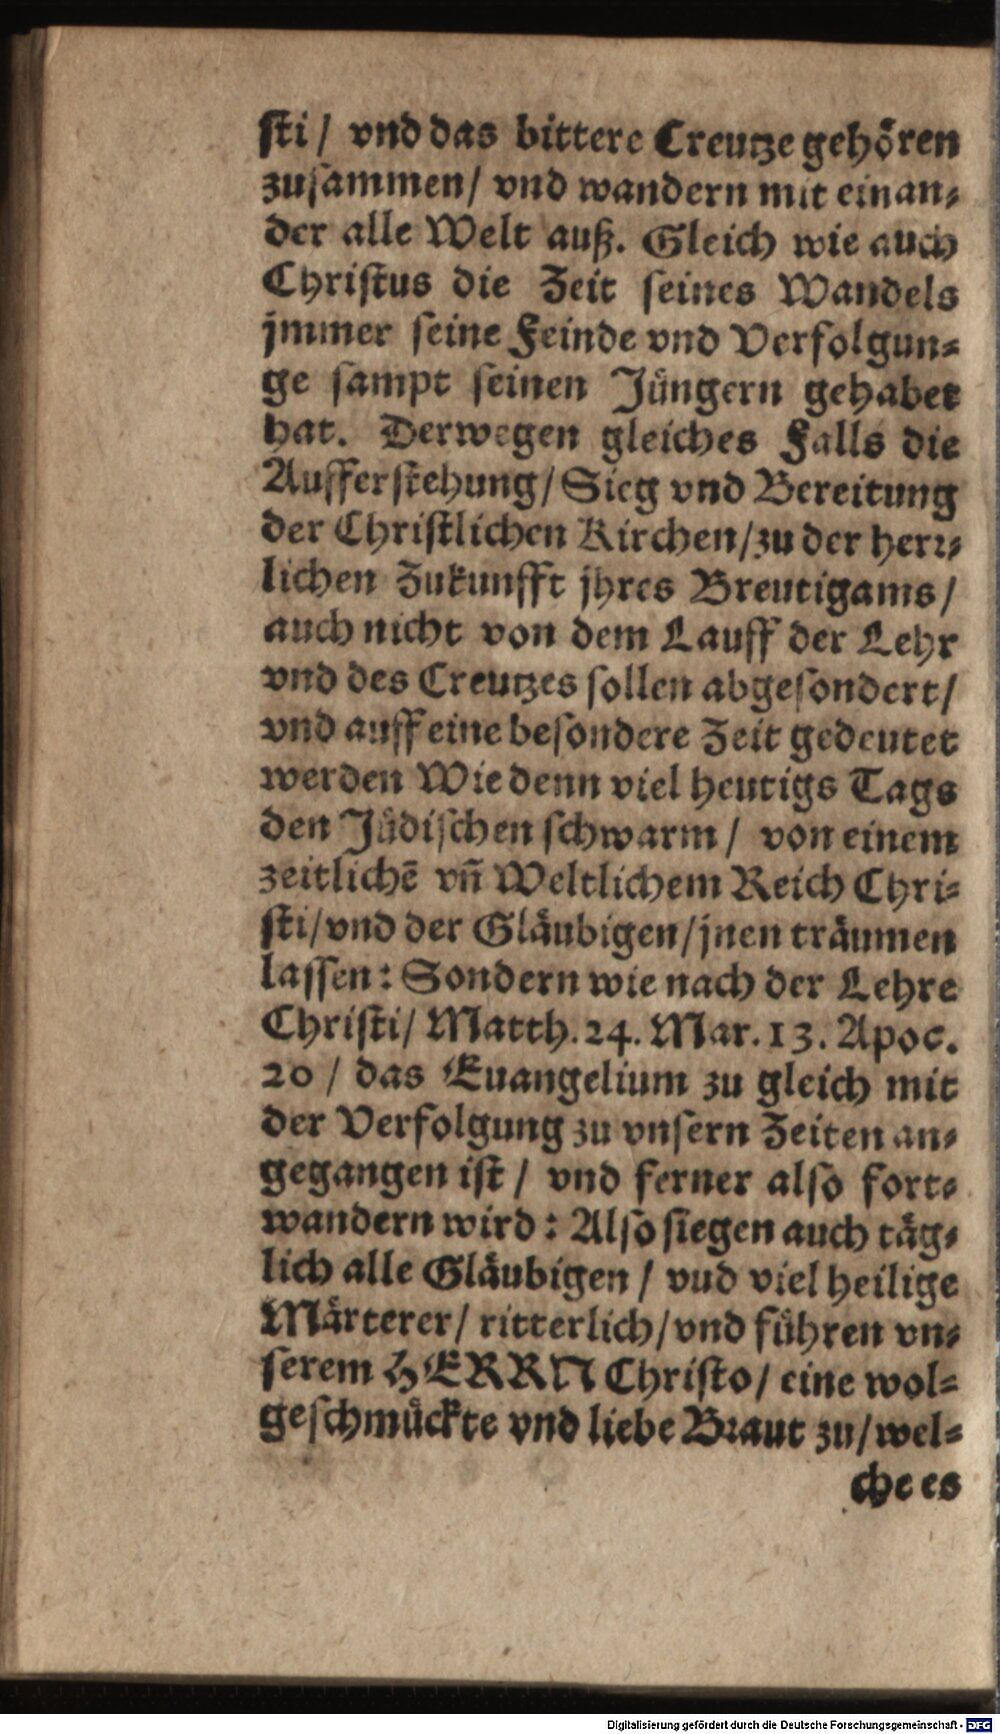 sti / vnd das bittere Creutze gehören
zusammen / vnd wandern mit einan-
der alle Welt auß. Gleich wie auch
Christus die Zeit seines Wandels
jmmer seine Feinde vnd Verfolgun-
ge sampt seinen Jüngern gehabet
hat. Derwegen gleiches Falls die
Aufferstehung / Sieg vnd Bereitung
der Christlichen Kirchen / zu der herr-
lichen Zukunfft jhres Breutigams /
auch nicht von dem Lauff der Lehr
vnd des Creutzes sollen abgesondert /
vnd auff eine besondere Zeit gedeutet
werden Wie denn viel heutigs Tags
den Jüdischen schwarm / von einem
zeitlichē vñ Weltlichem Reich Chri-
sti / vnd der Gläubigen / jnen träumen
lassen: Sondern wie nach der Lehre
Christi / Matth. 24. Mar. 13. Apoc.
20 / das Euangelium zu gleich mit
der Verfolgung zu vnsern Zeiten an-
gegangen ist / vnd ferner also fort-
wandern wird: Also siegen auch täg-
lich alle Gläubigen / vud viel heilige
Märterer / ritterlich / vnd führen vn-
serem HERRN Christo / eine wol-
geschmückte vnd liebe Braut zu / wel-
che es
Digitalisierung gefördert durch die Deutsche Forschungsgemeinschaft - DFG